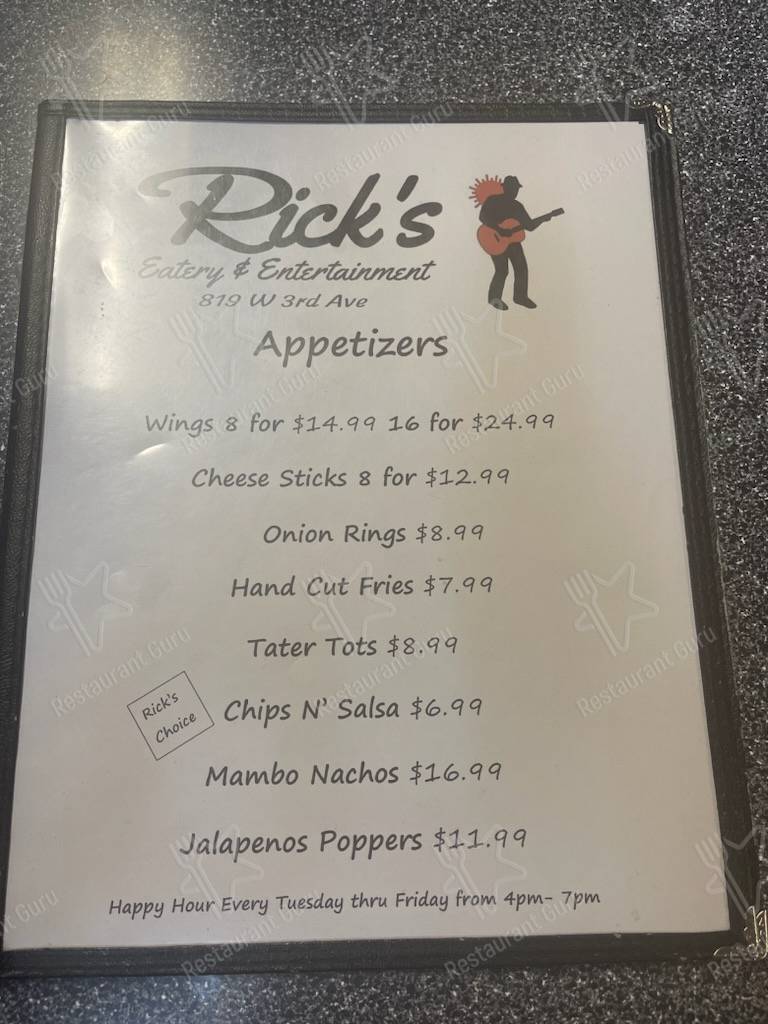 Rick's
Eatery & Entertainment
819 W 3rd Ave
Appetizers
Wings 8 for $14.99 16 for $24.99
Cheese Sticks 8 for $12.99
Onion Rings $8.99
Hand Cut Fries $7.99
Tater Tots $8.99
Rick's
Choice
Chips N' Salsa $6.99
Mambo Nachos $16.99
Jalapenos Poppers $11.99
Happy Hour Every Tuesday thru Friday from 4pm- 7pm
Restaurant Guru